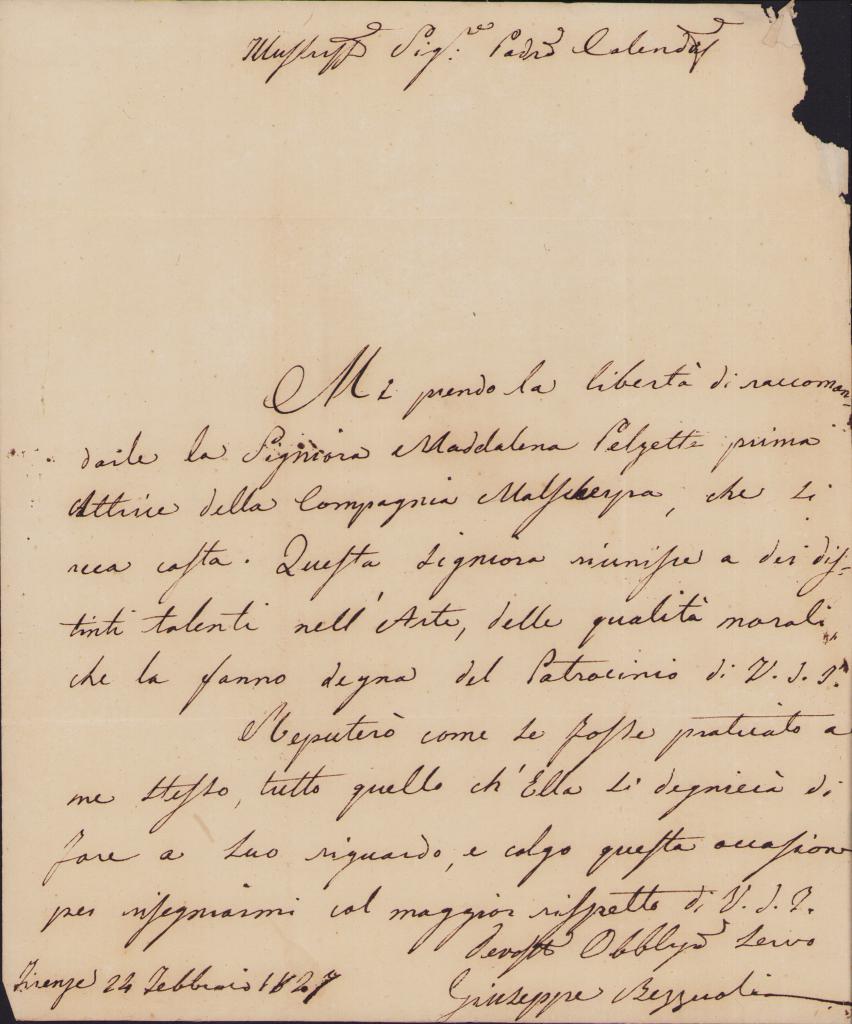 Illustriss.e Sig.re Padrē Colendss
Mi prendo la libertà di raccoman-
darle la Signiora Maddalena Pelzetti prima
Attrice della Compagnia Mascherpa, che si
reca costa. Questa Signiora riunisce a dei dis-
tinti talenti nell'Arte, delle qualità morali
che la fanno degna del Patrocinio di V. S. I.
Reputerò come se fosse praticato a
me stesso, tutto quello ch'Ella si degnierà di
fare a suo riguardo, e colgo questa occasione
per rassegniarmi col maggior rispetto di V. S. I.
Devost Obbligo Servo
Firenze 24 Febbraio 1827
Giuseppe Bezzuoli